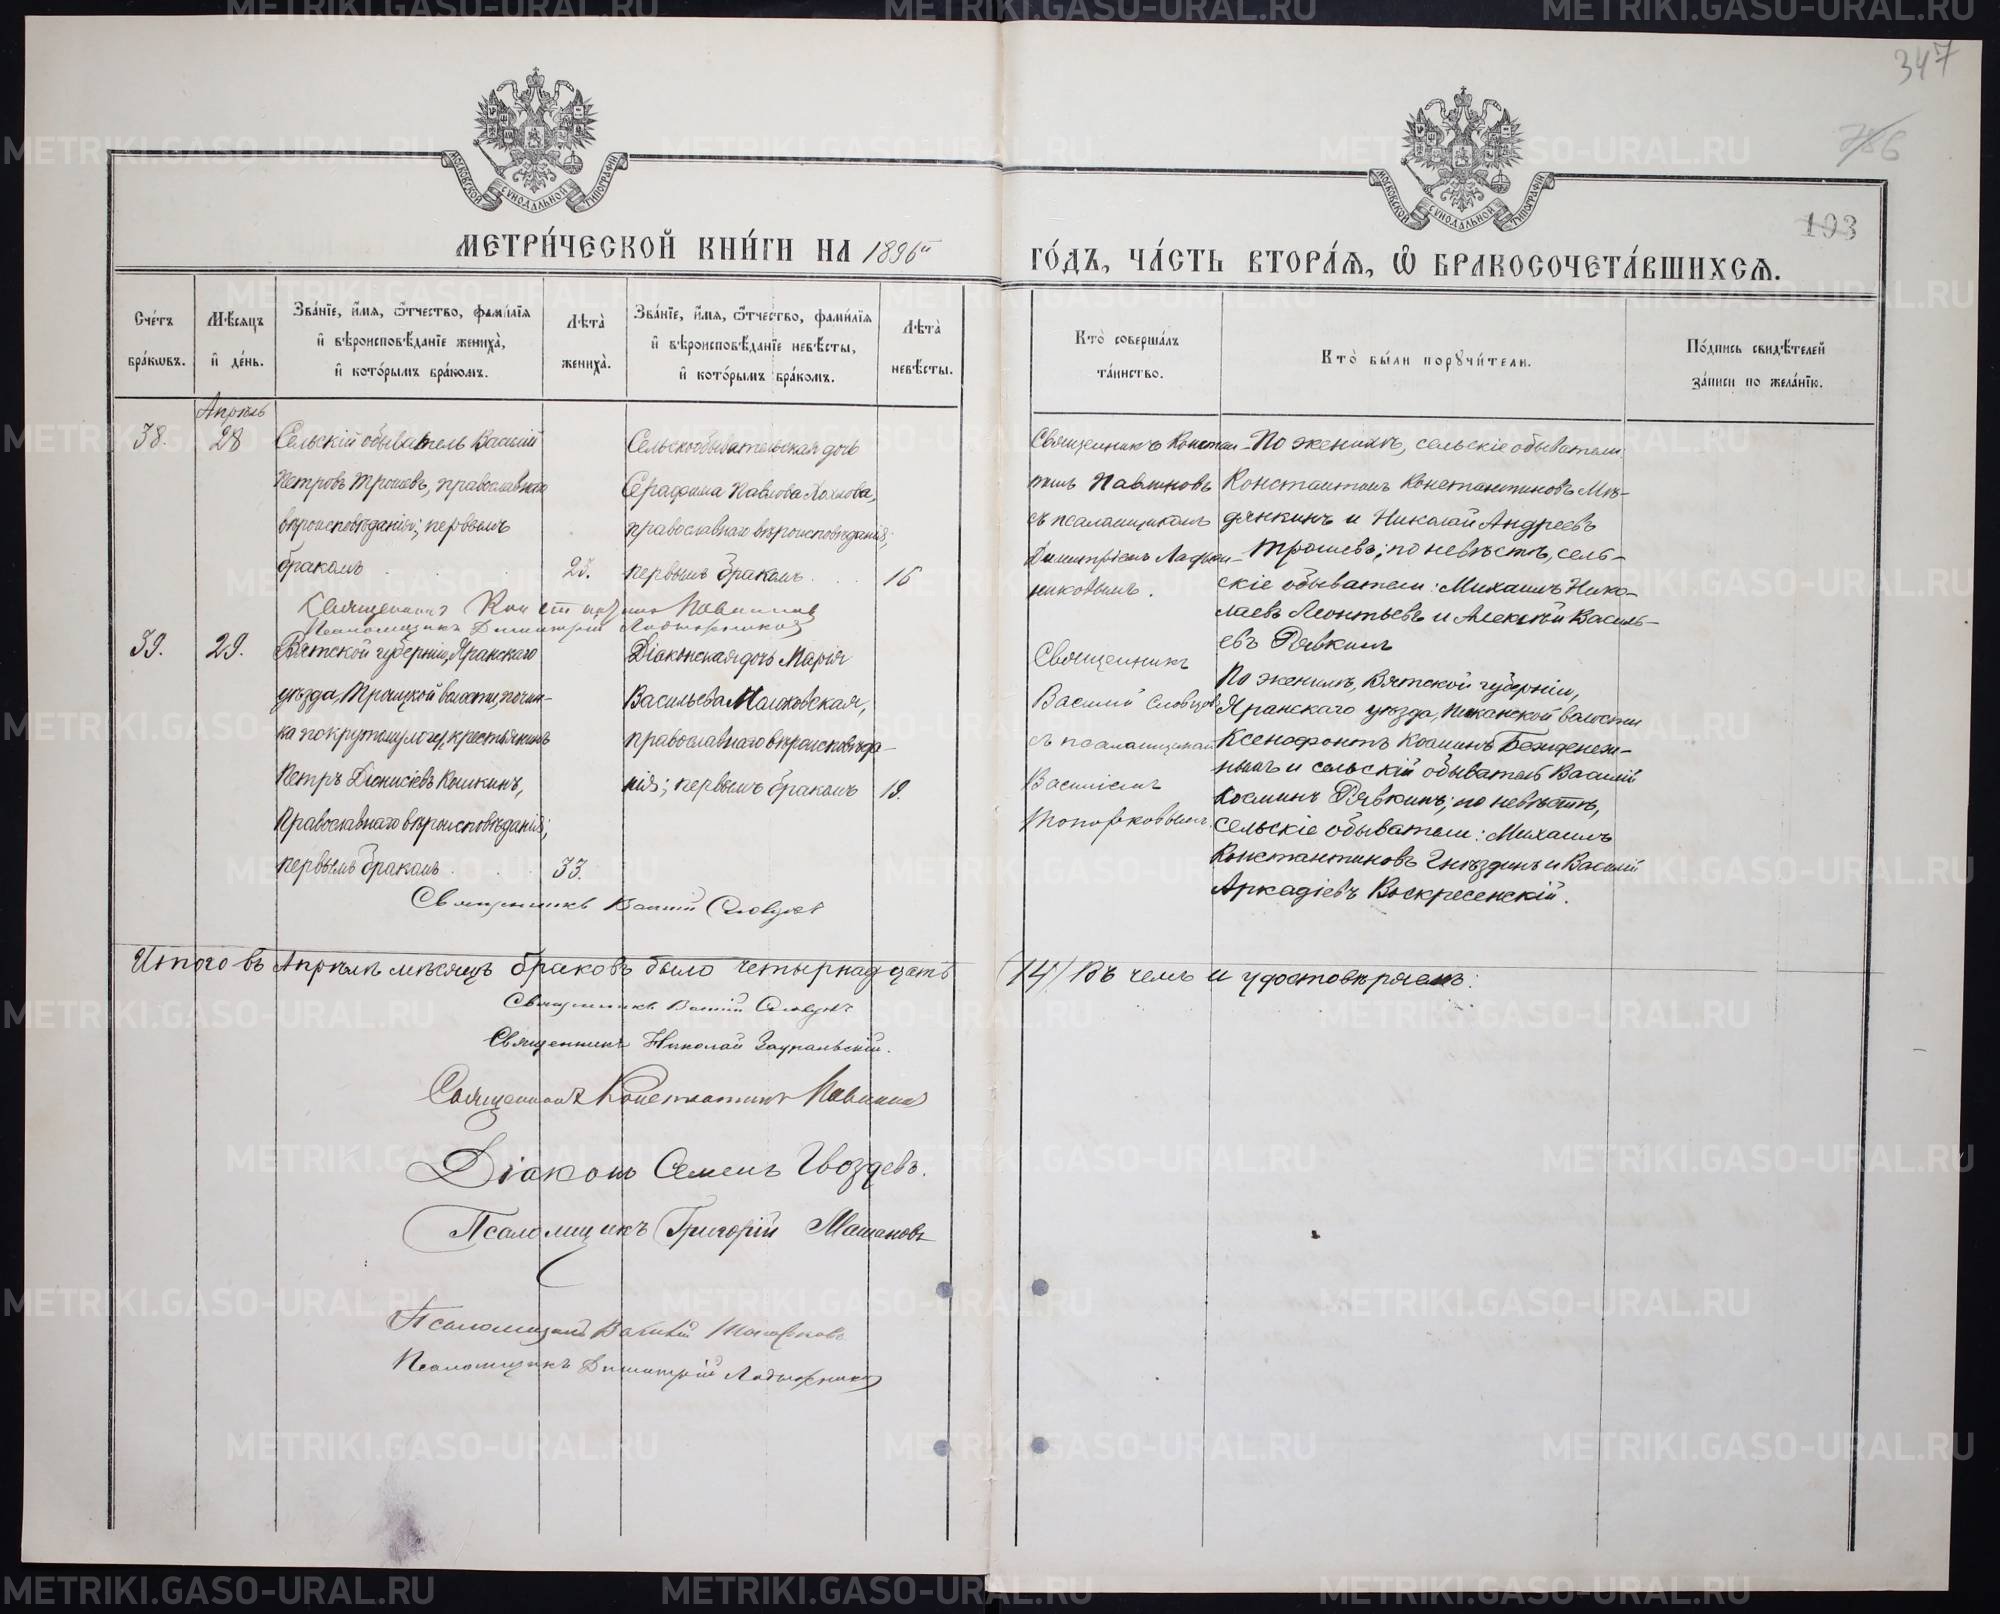 347
786
103
МОСКОВСКОЙ СѴНОДАЛЬНОЙ ТИПОГРАФІИ
МОСКОВСКОЙ СѴНОДАЛЬНОЙ ТИПОГРАФІИ
МЕТРИ́ЧЕСКОЙ КНИ́ГИ НА 1896й
ГО́ДЪ, ЧА́СТЬ ВТОРА́Я, Ѽ БРАКОСОЧЕТА́ВШИХСЯ.
Сче́тъ бра́кωвъ.
Мѣ́сяцъ и҆ де́нь.
Зва́нїе, и҆́мя, ѻ҆́тчество, фами́лїя и҆ вѣроисповѣ́данїе жениха̀, и҆ кото́рымъ бра́комъ.
Лѣта̀ жениха̀.
Зва́нїе, и҆́мя, ѻ҆́тчество, фами́лїя и҆ вѣроисповѣ́данїе невѣ́сты, и҆ кото́рымъ бра́комъ.
Лѣта̀ невѣ́сты.
Кто̀ соверша́лъ та́инство.
Кто̀ бы́ли порꙋчи́тели.
По́дпись свидѣ́телей за́писи по жела́нїю.
Апрѣль
38.
28
Сельскій обыватель Василій
Петровъ Трошевъ, православнаго
вѣроисповѣданія; первымъ
бракомъ
23.
Сельскообывательская дочь
Серафима Павлова Хохлова,
православнаго вѣроисповѣданія;
первымъ бракомъ
16
Священникъ Констан-
тинъ Павлиновъ
съ псаломщикомъ
Димитріемъ Ладыж-
никовымъ.
По женихѣ, сельскіе обыватели
Константинъ Константиновъ Мѣ-
дянкинъ и Николай Андреевъ
Трошевъ; по невѣстѣ, сель-
скіе обыватели: Михаилъ Нико-
лаевъ Леонтьевъ и Алексѣй Василь-
евъ Рявкинъ
Священникъ Константинъ Павлиновъ
Псаломщикъ Димитрій Ладыжников
39.
29.
Вятской губерніи, Яранскаго
уѣзда, Троицкой волости, почин-
ка по крутому логу, крестьянинъ
Петръ Діонисіевъ Кошкинъ,
Православнаго вѣроисповѣданія;
первымъ бракомъ
33.
Діаконская дочь Марія
Васильева
православнаго вѣроисповѣда-
нія; первымъ бракомъ
19.
Священникъ
Василій Словцовъ
съ псаломщикомъ
Василіемъ
Топорковымъ.
По женихѣ, Вятской губерніи,
Яранскаго уѣзда, волости
Ксенофонтъ Косминъ Безденеж-
ныхъ и сельскій обыватель Василій
Косминъ Рявкинъ; по невѣстѣ,
сельскіе обыватели: Михаилъ
Константиновъ Гнѣздинъ и Василій
Аркадіевъ Воскресенскій.
Священникъ Василій Словцовъ
Итого въ Апрѣлѣ мѣсяцѣ браковъ было четырнадцать (14) Въ чемъ и удостовѣряемъ:
Священникъ Василій Словцовъ
Священникъ Николай Зауральскій.
Священникъ Константинъ Павлинов
Діаконъ Семенъ Гвоздевъ.
Псаломщикъ Григорій Машановъ
Псаломщикъ Василій Топорковъ
Псаломщикъ Димитрій Ладыжников
METRIKI.GASO-URAL.RU